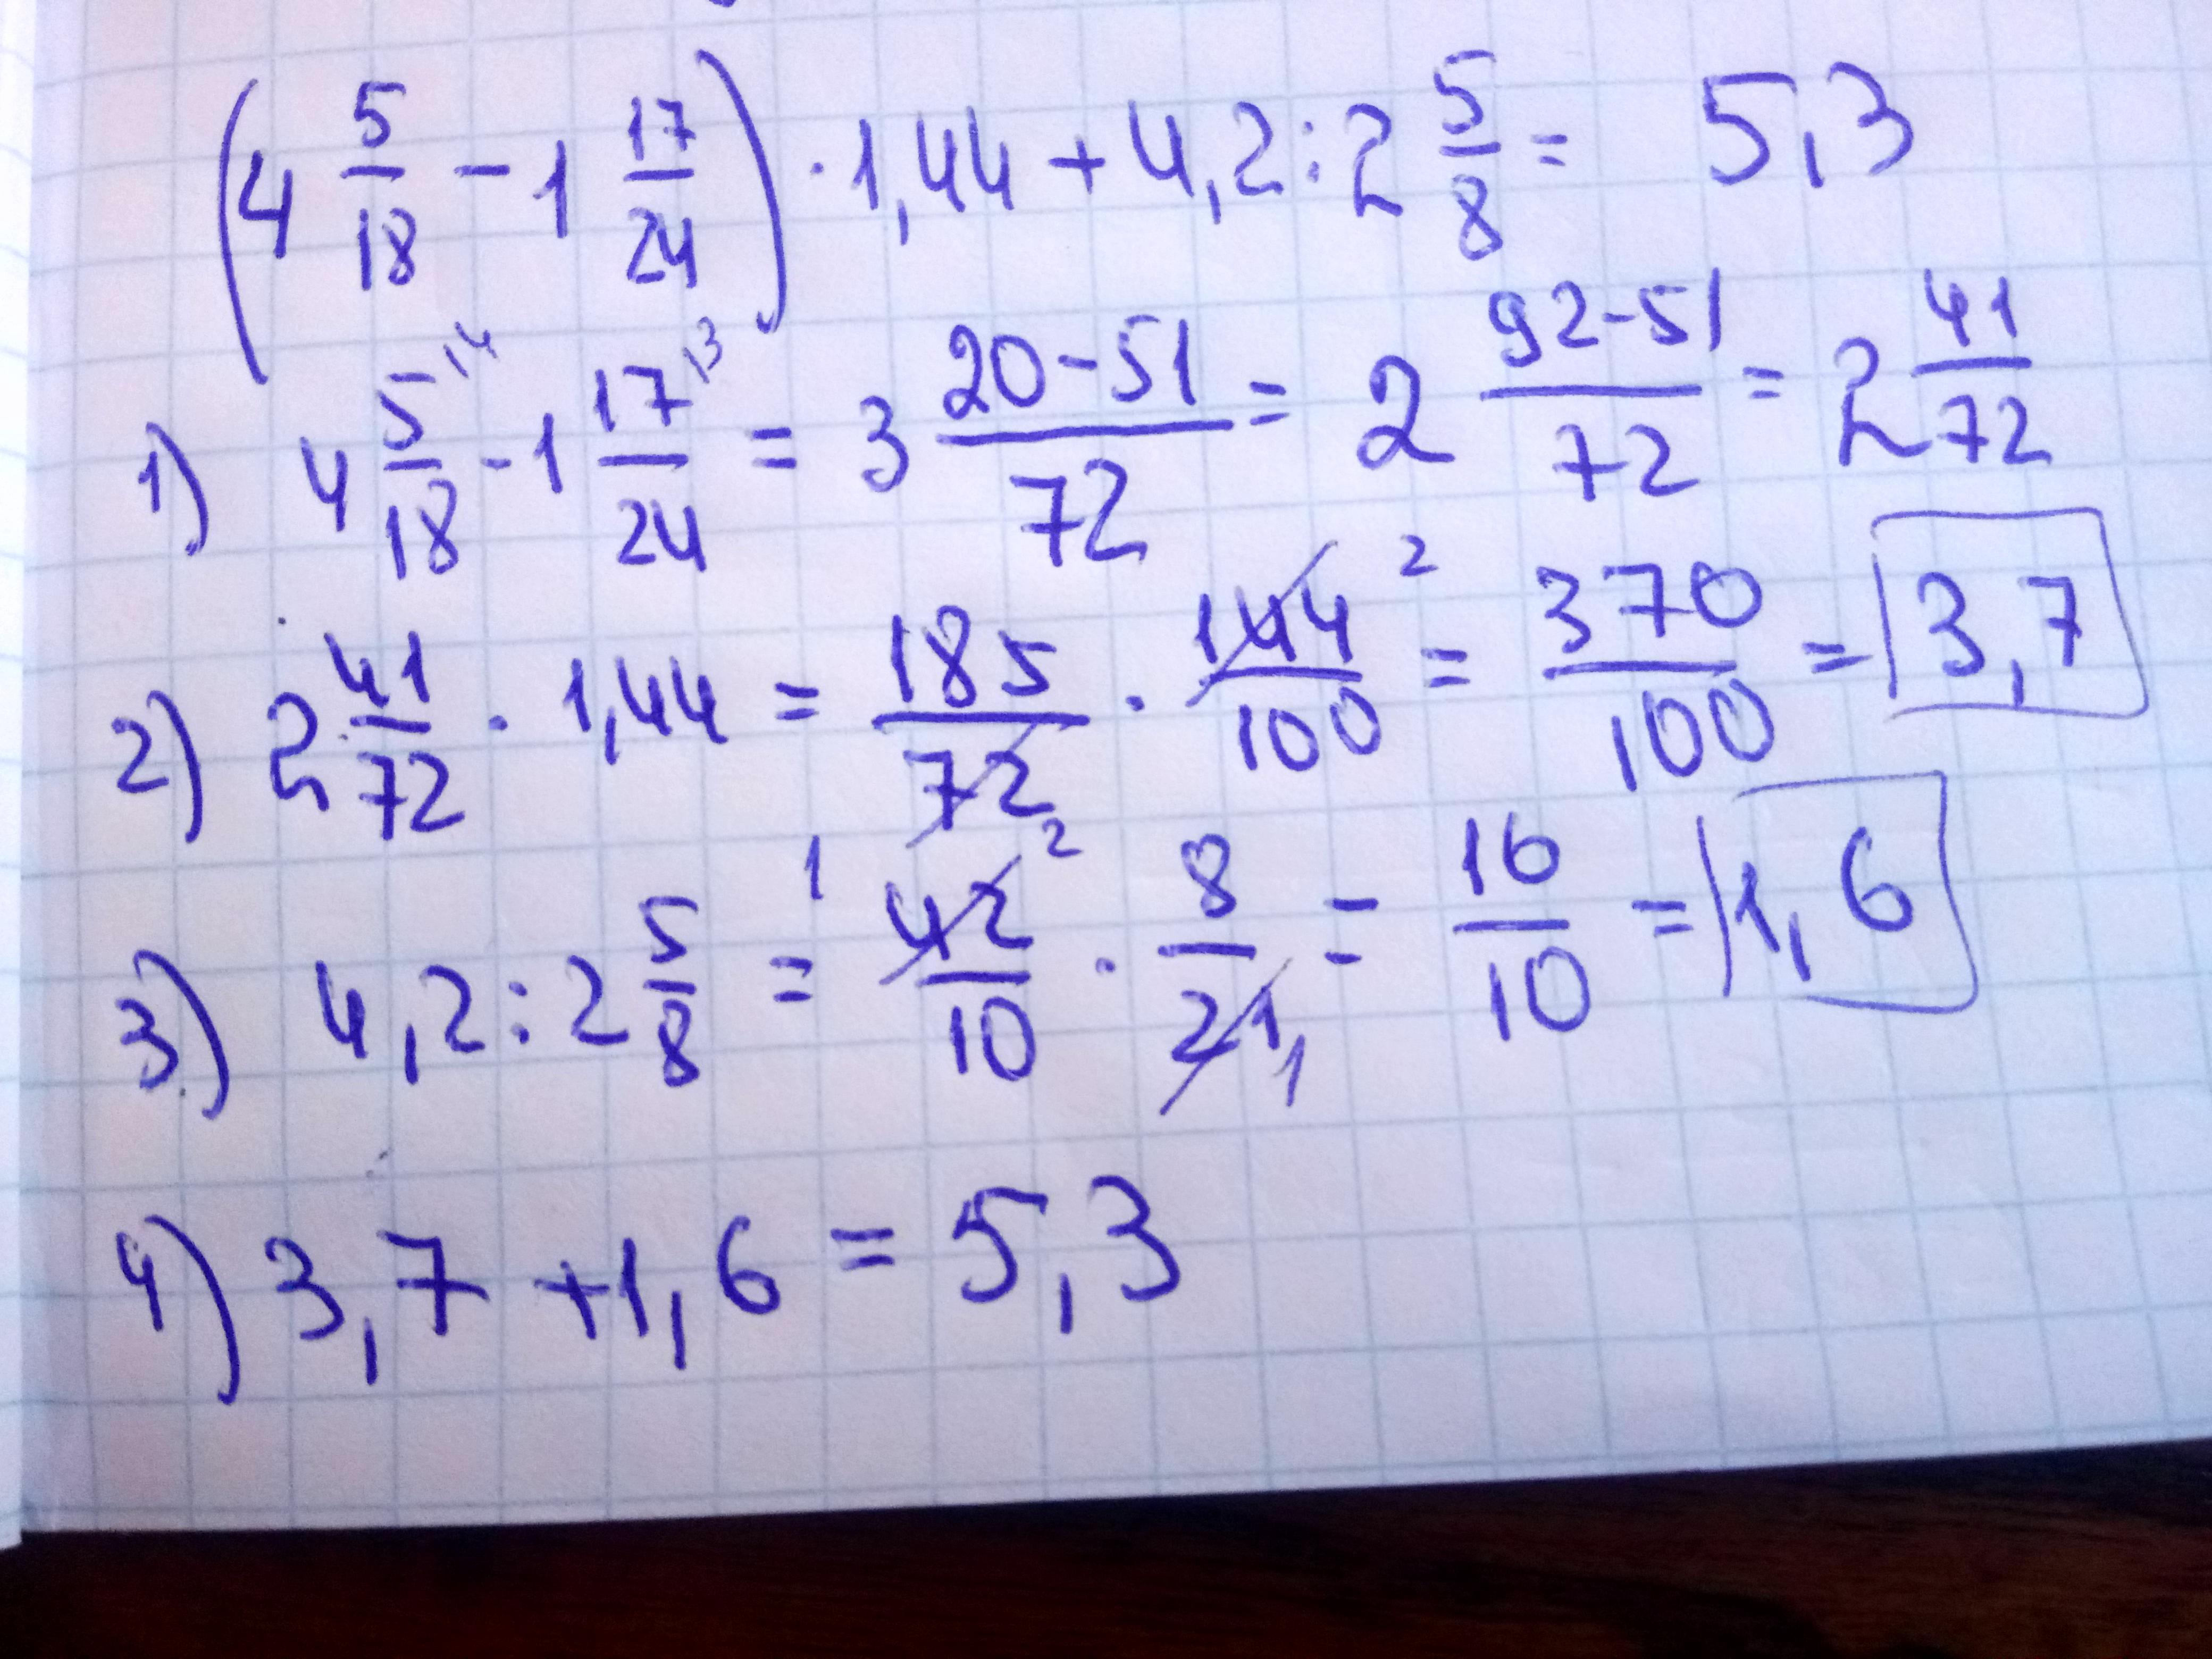 (4 5/18 - 1 17/24) · 1,44 + 4,2 : 2 5/8 = 5,3
1) 4 5/18 ^14 - 1 17/24 ^13 = 3 20-51/72 = 2 92-51/72 = 2 41/72
2) 2 41/72 · 1,44 = 185/72 · 144/100 ^2 = 370/100 = 3,7
3) 4,2 : 2 5/8 = ^1 42/10 ^2 · 8/21 1 = 16/10 = 1,6
4) 3,7 + 1,6 = 5,3